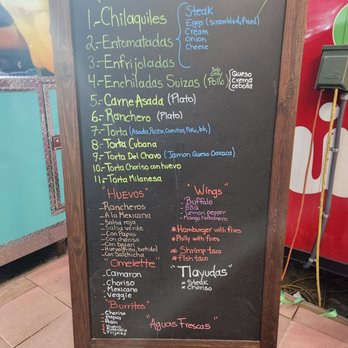 1.-Chilaquiles
2.-Entomatadas
3.-Enfrijoladas
Steak
Eggs (scrambled, Fried)
Cream
Onion
Cheese
4.-Enchiladas Suizas (Pollo)
Queso
crema
cebolla
5.-Carne Asada (Plato)
6.-Ranchero (Plato)
7.-Torta (Asada,
8.-Torta Cubana
9.-Torta Del Chavo (Jamon Queso Oaxaca)
10.-Torta Chorizo con huevo
11.-Torta Milanesa
"Huevos"
-Rancheros
-A la Mexicana
-Salsa roja
-Salsa verde
-Con Papas
-Con chorizo
-Con bacon
-Con Salchicha
"Omelette"
-Camaron
-Choriso
-Mexicano
-Veggie
"Burritos"
"Wings"
-Buffalo
-BBQ
-Lemon pepper
-Mango habanero
*Hamburger with fries
*Philly with fries
*Shrimp taco
*Fish taco
"Tlayudas"
*Steak
*Choriso
"Aguas Frescas"